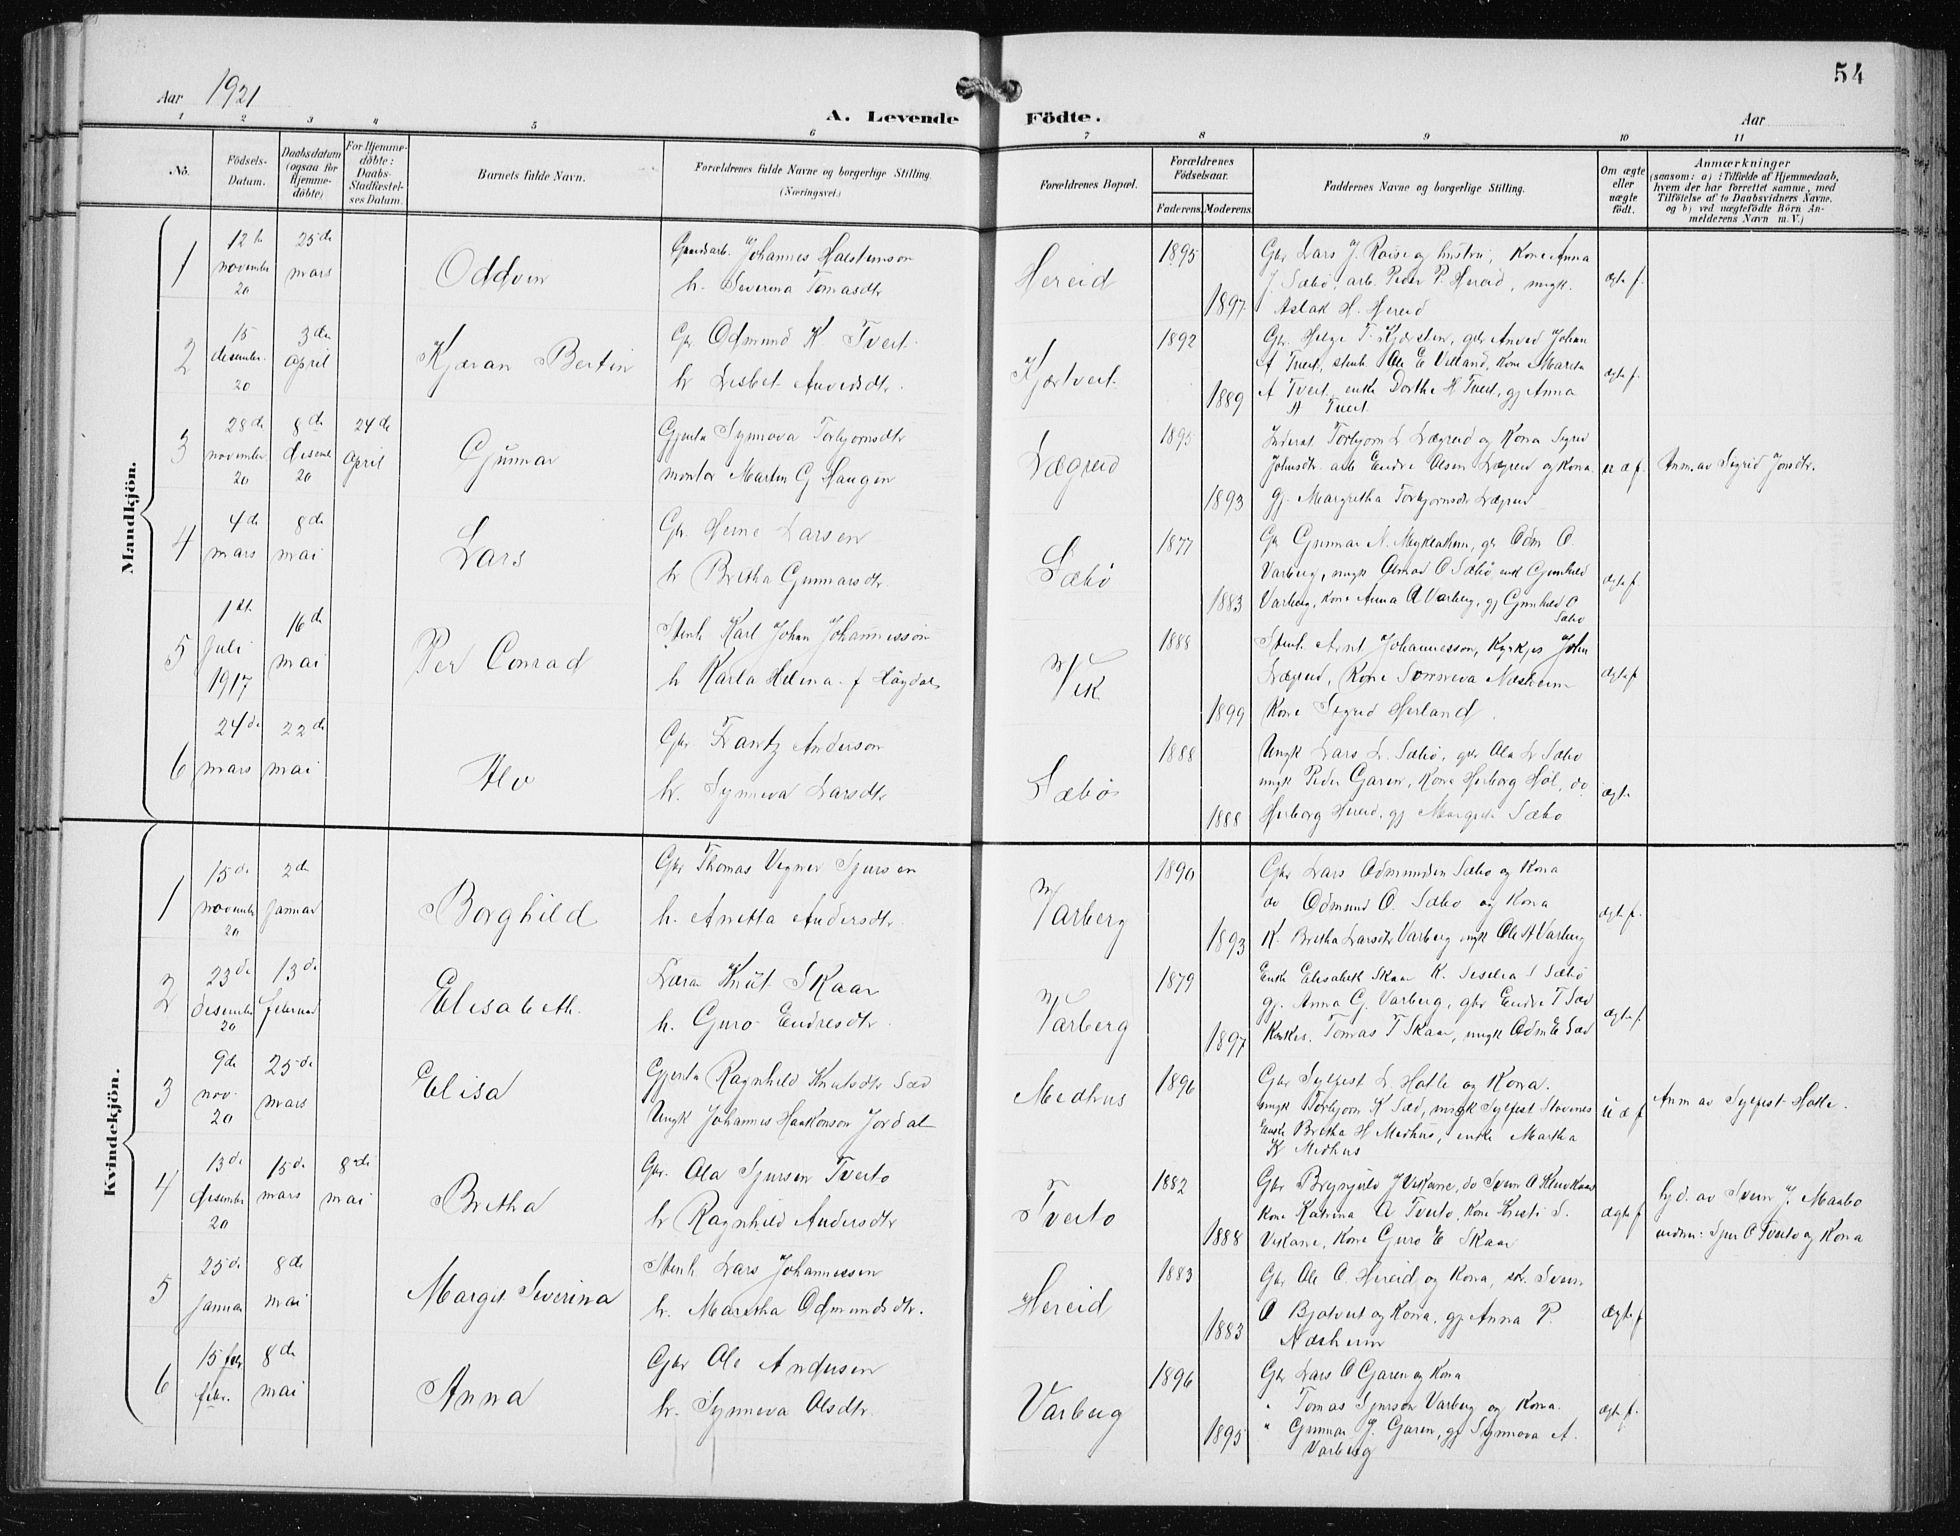 54
Aar 1921
A. Levende Födte.
Aar
1 2 3 4 5 6 7 8 9 10 11
No.
Födsels-Datum.
Daabsdatum (ogsaa for Hjemme-döbte)
For Hjemme-döbte: Daabs-Stadfæstel-ses Datum.
Barnets fulde Navn.
Forældrenes fulde Navne og borgerlige Stilling. (Næringsvei.)
Forældrenes Bopæl.
Forældrenes Födselsaar.
Faderens. Moderens.
Faddernes Navne og borgerlige Stilling.
Om ægte eller uægte födt.
Anmærkninger
(saasom: a) i Tilfælde af Hjemmedaab,
hvem der har forrettet samme, med
Tilföielse af to Daabsvidners Navne.
og b) ved uægtefödte Börn An-
melderens Navn m. V.)
Mandkjön.
1 12te november 20 25de mars
Oddvin
Johannes Halsteinson
h. Severina Tomasdtr
Hereid
1895 1897
Gbr Lars J. Røise og hustru, Kone Anna
J. Sæbø, arb. Peder P. Hereid, ungk.
Aslak H. Hereid
ægte f.
2 15 desember 20 3de april
Kjæran Bertin
Gbr Odmund K Tveit
h Lisbet Anvedsdtr.
Kjærtveit
1892 1889
Gbr. Helge T. Kjærstein, gbr Anved Johan
A Tveit, stenh. Ole E Villand, Kone Mareta
A Tveit, enke Dorthe H Tveit, gj Anna
A Tveit
ægte f.
3 28de november 20 8de desemb 20 24de april
Gunnar
Gjenta Synnøva Torbjørnsdtr
montør Martin G Haugen
Lægreid
1895 1893
Inderst. Torbjørn L Lægreid og Kona Sigrid
Johnsdtr. arb Endre Olsen Lægreid og Kona
gj. Margretha Torbjørnsdtr Lægreid
u æ f.
Anm. av Sigrid Jonsdtr.
4 4de mars 8de mai
Lars
Gbr. Heine Larsen
h Bretha Gunnarsdtr.
Sæbø
1877 1883
Gbr Gunnar N. Myklatun, gbr Odm O.
Varberg, ungk Olmod O Sæbø, enk Gunhild
Varberg, Kone Anna A Varberg, gj Gunhild O
Sæbø
ægte f
5 1ste juli 1917 16de mai
Per Conrad
Stenh Karl Johan Johannesson
h Karla Helena f Høgdal
Vik
1888 1899
Stenh. Arnt Johannesson, Kyrkjes John
Lægreid, Kone Sunneva Næsheim
Kone Sigrid Herland.
ægte f
6 24de mars 22de mai
Alv
Gbr Frantz Anderson
h. Synneva Larsdtr
Sæbø
1888 1888
Ungk Lars L. Sæbø, gbr Ola L Sæbø
ungk Peder Garen, Kone Herborg Høl, do
Herborg Hereid, gj Margrete Sæbø
ægte
Kvindekjön.
1 15de november 20 2de januar
Borghild
Gbr Thomas Vegner Sjursen
h. Anetta Andersdtr.
Varberg
1890 1893
Gbr Lars Odmundsen Sæbø og Kona
do Odmund O. Sæbø og Kona
K. Bretha Larsdtr Varberg ungk Ole A Varberg
ægte f.
2 23de desember 20 13de februar
Elisabeth.
Lærar Knut Skaar
h. Guro Endresdtr.
Varberg
1879 1897
Enke Elisabeth Skaar K. Siselia S Sæbø
gj. Anna G. Varberg, gbr Endre T Sæd
Kyrkjes. Tomas T Skaar, ungk Odm E Sæd
ægte f.
3 9de nov. 20 25de mars
Elisa
Gjenta Ragnhild Knutsdtr Sæd
Ungk Johannes Haakonson Jordal
Medhus
1896
Gbr Sylfest L. Hotle og Kona.
ungk Torbjørn K Sæd, ungk Sylfest Stavenes
Enke Bretha H Medhus, enke Martha
K Medhus
u æ f
Anm av Sylfest Hotle.
4 13de desember 20 15de mars 8de mai
Bretha
Gbr. Ola Sjursen Tveito
h Ragnhild Andersdtr
Tveito
1882 1888
Gbr Brynjulv J Vikane, do Svein O Kluvkaas
Kone Katrina A Tveito, Kone Kristi S.
Vikane, Kone Guro E Skaar
ægte f
hjd. av Svein J. Maabø
vidner: Sjur O Tveito og Kona
5 25de januar 8de mai
Margit Severina
Stenh Lars Johannessen
h. Maretha Odmundsdtr.
Hereid
1883 1883
Gbr Ole O. Hereid og Kona, Svein
O Bjotveit og Kona, gj Anna P.
Næsheim
ægte f
6 15 febr febr. 8de mai
Anna
Gbr Ole Andersen
h. Synneva Olsdtr.
Varberg
1896 1895
Gbr Lars O Garen og Kona
" Tomas Sjurson Varberg og Kona.
" Gunnar J. Garen, gj Synnøva A.
Varberg
ægte f.